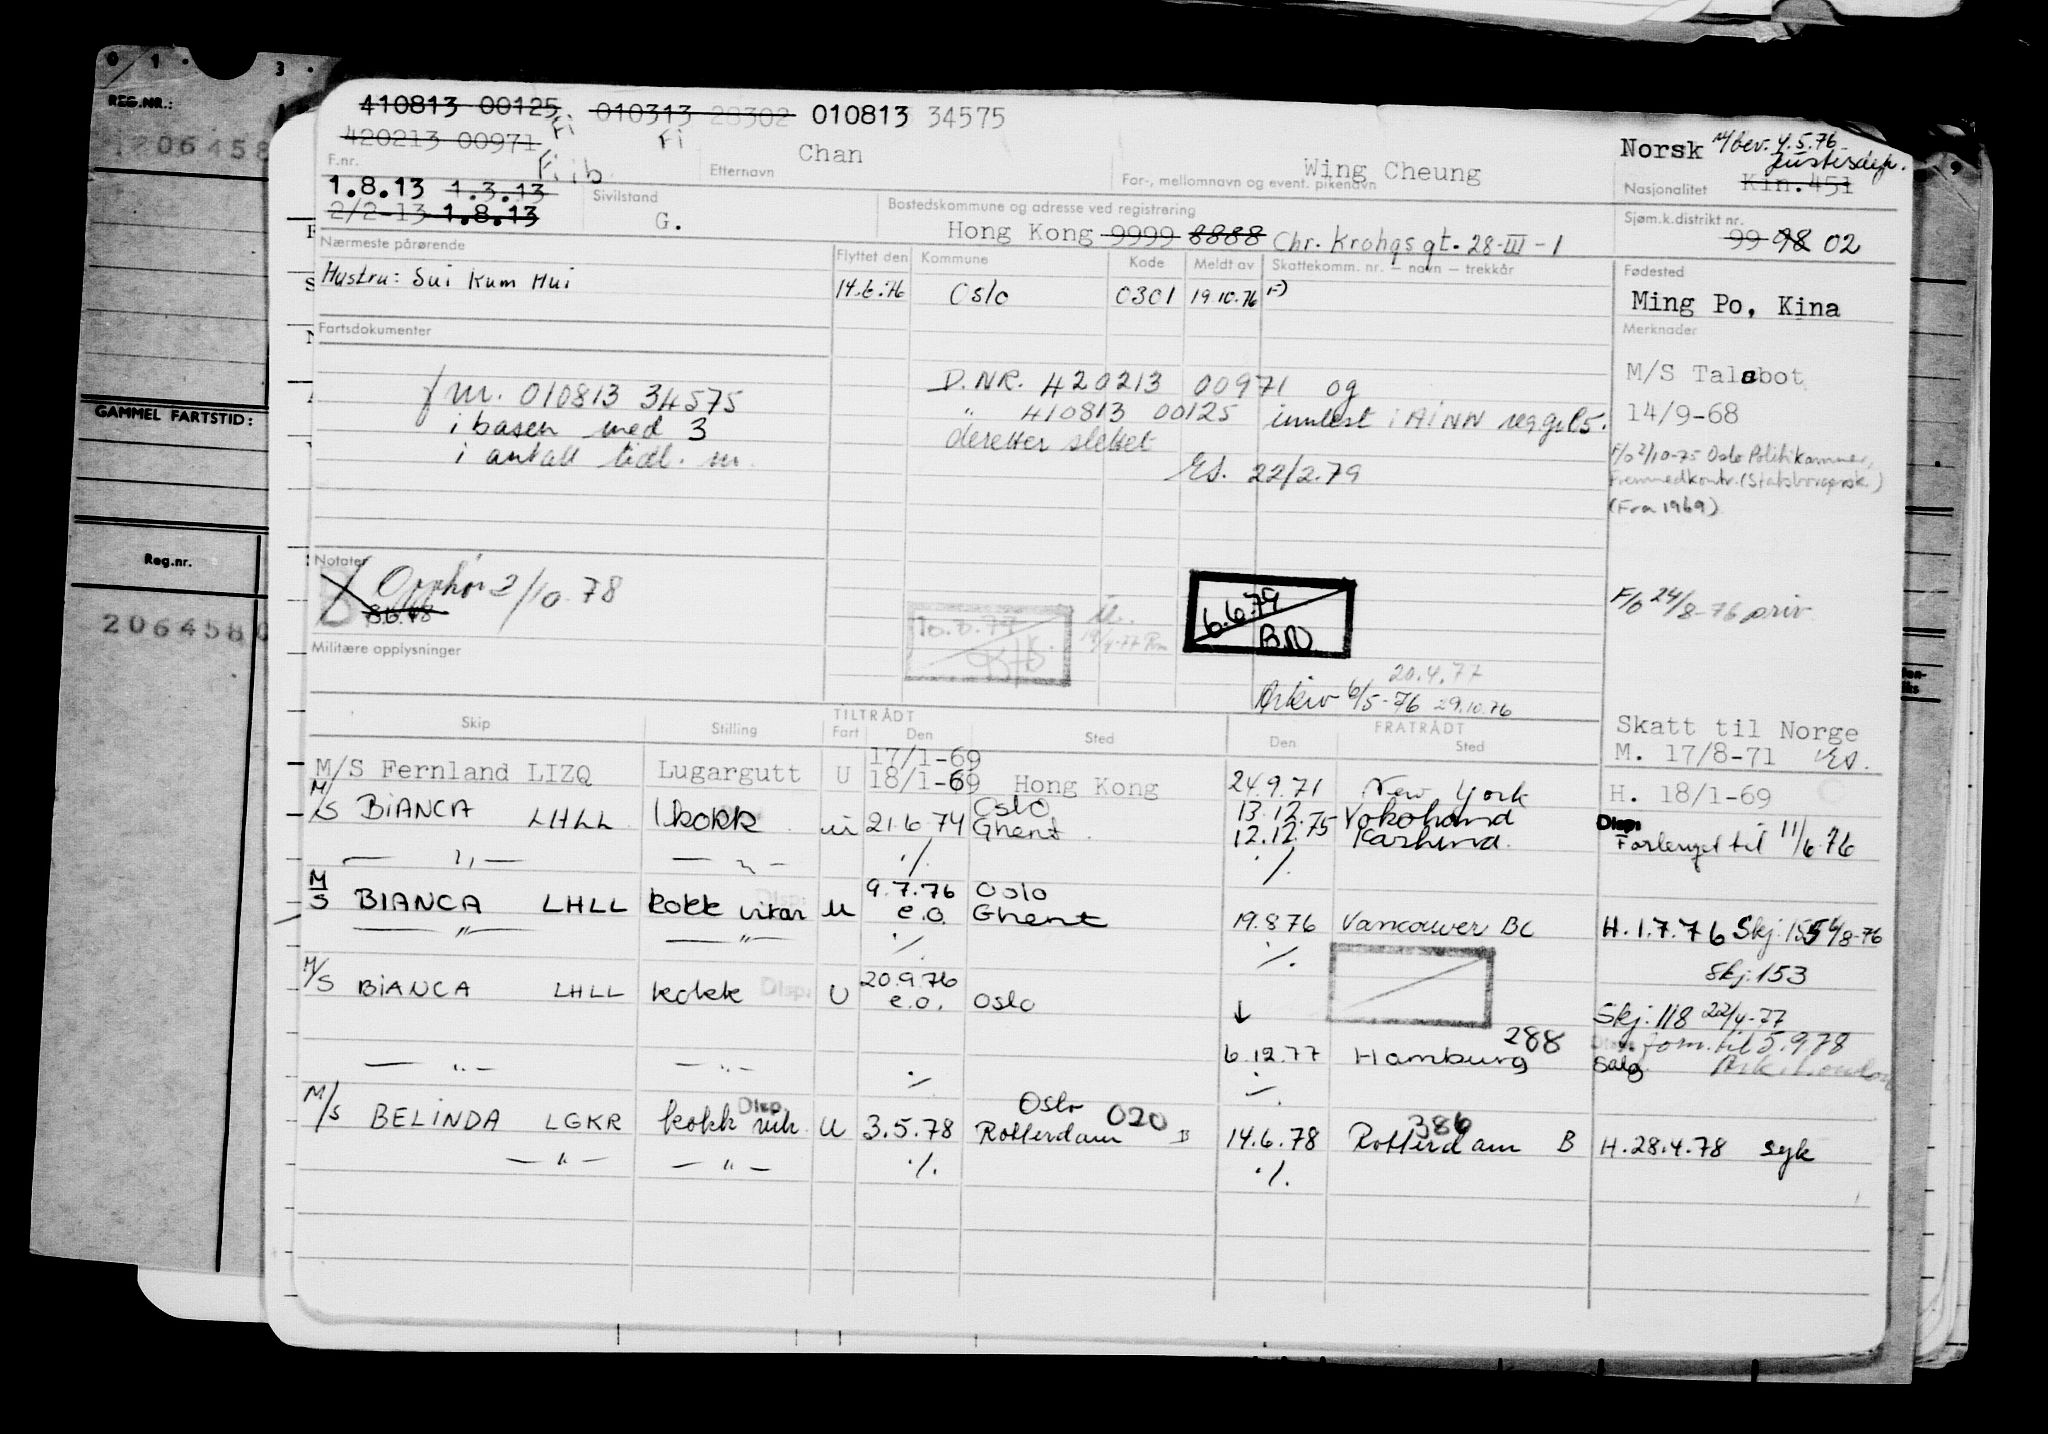 0 1 . 3 .
REG.NR.:
1206458
GAMMEL FARTSTID:
Reg.nr.
2064580
410813 00125 010313 28302 010813 34575
420213 00971 Fi Fi
Fiib
F.nr. Chan Etternavn Wing Cheung For-, mellomnavn og event. pikenavn
Norsk M/bev. 4.5.76 Justisdep.
Nasjonalitet Kin.451
1.8.13 1.3.13
2/2-13 1.8.13
Sivilstand G.
Bostedskommune og adresse ved registrering
Hong Kong 9999 8888 Chr. Krohgsgt. 28-III-1
Sjøm.k.distrikt nr.
99 98 02
Nærmeste pårørende
Hustru: Sui Kum Hui
Flyttet den Kommune Kode Meldt av Skattekomm. nr. – navn – trekkår
14.6.76 Oslo 0301 19.10.76 F)
Fødested
Ming Po, Kina
Merknader
Fartsdokumenter
M/S Talabot
14/9-68
F/O 2/10-75 Oslo Politikammer,
Fremmedkontr. (Statsborgersk.)
(Fra 1969)
f nr. 010813 34575
i basen med 3
i antall tidl. nr.
D.NR. 420213 00971 og
" 410813 00125 innlest i AINN
deretter slettet
Es. 22/2.79
Notater
B Opphør 2/10.78
8.6.78
F/O 24/8-76 priv
6.6.79
B.N.
Militære opplysninger
20.4.77
Arkiv 6/5-76 29.10.76
Skip Stilling TILTRÅDT Fart Den Sted FRATRÅDT Den Sted
Skatt til Norge
M. 17/8-71 Es.
17/1-69
M/S Fernland LIZQ Lugargutt U 18/1-69 Hong Kong 24.9.71 New York H. 18/1-69
M/S BIANCA LHLL kokk U 21.6.74 Oslo Ghent 13.12.75 Yokohama
12.12.75
Disp: Forlenget til 11/6.76
— " — — " — ./. ./.
M/S BIANCA LHLL kokk vikar U 9.7.76 Oslo
e.o. Ghent 19.8.76 Vancouver BC H.1.7.76 Skj.155 6/8-76
— " — — " — ./. ./.
Skj.153
M/S BIANCA LHLL kokk Disp: U 20.9.76 e.o. Oslo ↓
Skj.118 22/4-77
288 Disp. forn. til 5.9.78
6.12.77 Hamburg Salg
— " — — " — ./. ./.
M/S BELINDA LGKR kokk vik. Disp U 3.5.78 Oslo Rotterdam 020 B 14.6.78 Rotterdam 386 B H.28.4.78 syk
— " — — " — ./. ./.